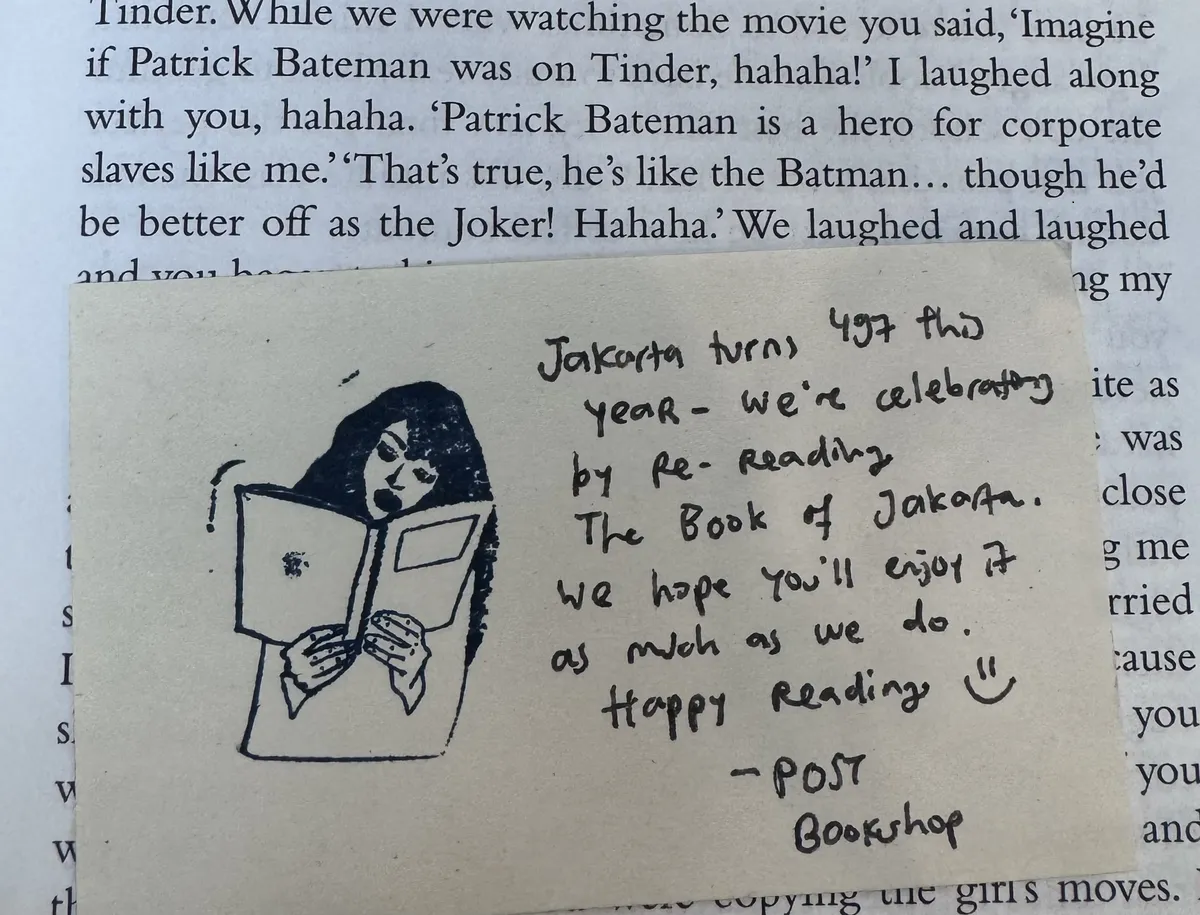 Tinder. While we were watching the movie you said, ‘Imagine
if Patrick Bateman was on Tinder, hahaha!’ I laughed along
with you, hahaha. ‘Patrick Bateman is a hero for corporate
slaves like me.’ ‘That’s true, he’s like the Batman… though he’d
be better off as the Joker! Hahaha.’ We laughed and laughed
and you
my
Jakarta turns 497 this
year - we're celebrating
by Re-Reading
The Book of Jakarta.
We hope you'll enjoy it
as much as we do.
Happy Reading
- POST
Bookshop
as
was
close
me
you
you
and
copying the girl’s moves.